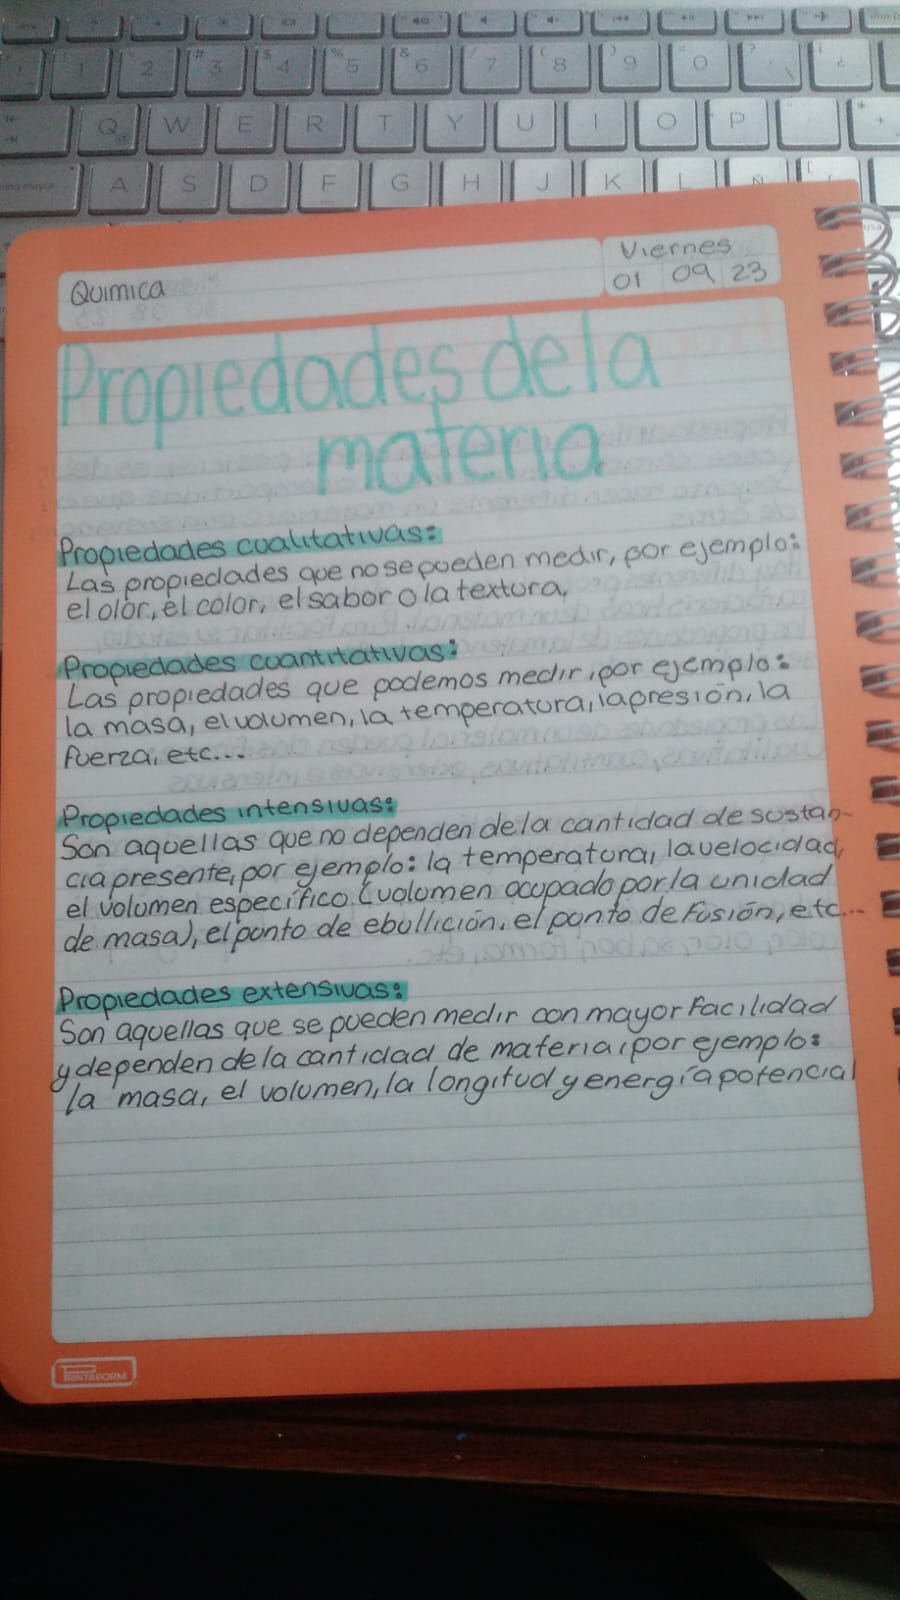 1 2 3 4 5 6 7 8 9 0
Q W E R T Y U I O P
A S D F G H J K L Ñ
Quimica
Viernes
01 09 23
Propiedades de la
materia
Propiedades cualitativas:
Las propiedades que no se pueden medir, por ejemplo:
el olor, el color, el sabor o la textura.
Propiedades cuantitativas:
Las propiedades que podemos medir, por ejemplo:
la masa, el volumen, la temperatura, la presión, la
fuerza, etc...
Propiedades intensivas:
Son aquellas que no dependen de la cantidad de sustan-
cia presente, por ejemplo: la temperatura, la velocidad,
el volumen específico (volumen ocupado por la unidad
de masa), el punto de ebullición, el punto de fusión, etc...
Propiedades extensivas:
Son aquellas que se pueden medir con mayor facilidad
y dependen de la cantidad de materia, por ejemplo:
la masa, el volumen, la longitud y energía potencial
PRINTAFORM